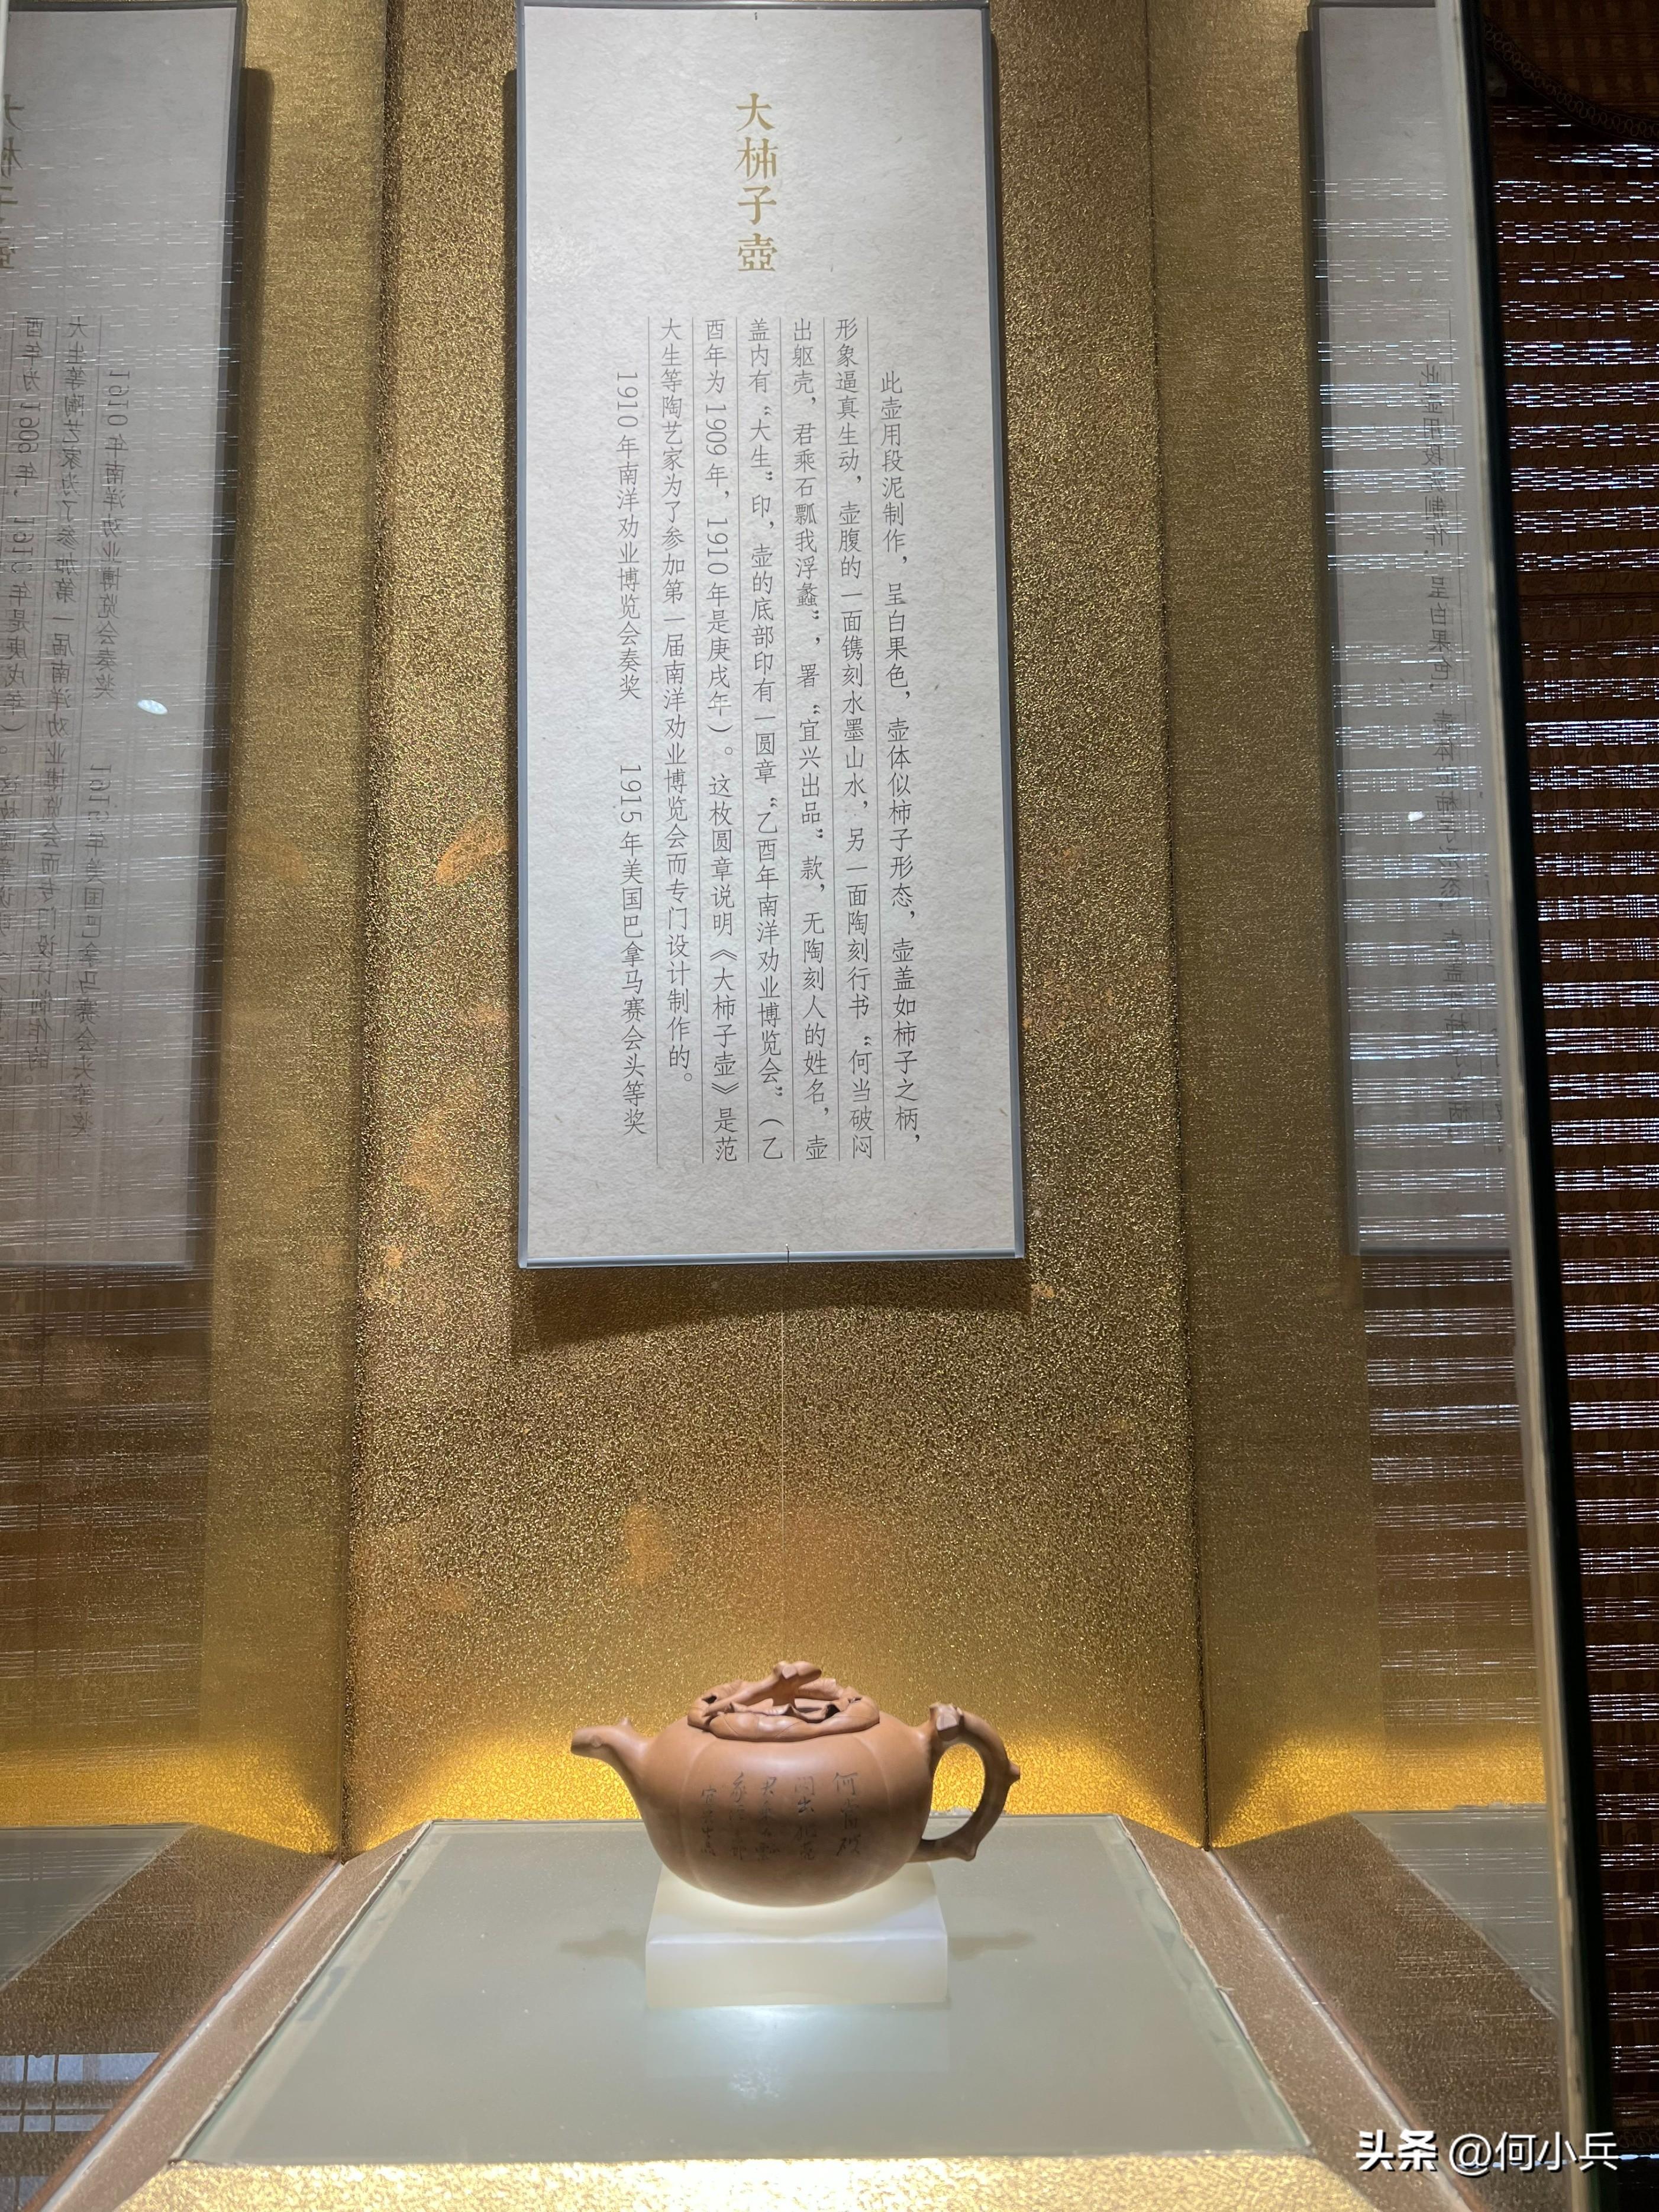 大柿子壶
此壶用段泥制作，呈白果色，壶体似柿子形态，壶盖如柿子之柄，
形象逼真生动，壶腹的一面镌刻水墨山水，另一面陶刻行书“何当破闷
出躯壳，君乘石瓢我浮蠡”，署“宜兴出品”款，无陶刻人的姓名，壶
盖内有“大生”印，壶的底部印有一圆章“乙酉年南洋劝业博览会”（乙
酉年为1909年，1910年是庚戌年）。这枚圆章说明《大柿子壶》是范
大生等陶艺家为了参加第一届南洋劝业博览会而专门设计制作的。
1910年南洋劝业博览会奏奖 1915年美国巴拿马赛会头等奖
头条 @何小兵